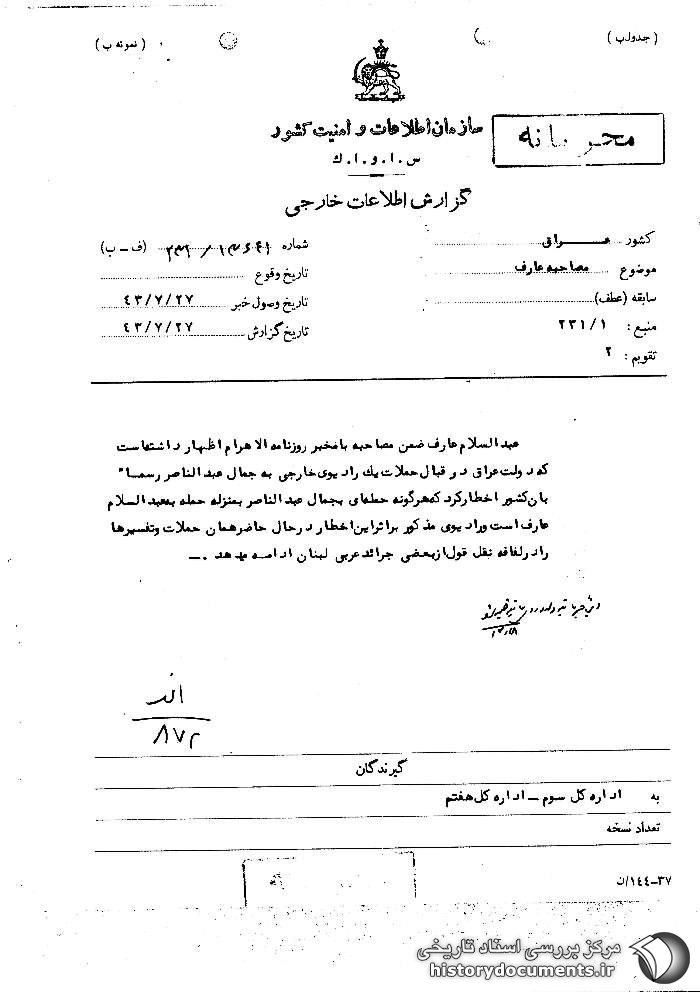 ( جدول ب )
( نمونه ب )
سازمان اطلاعات و امنیت کشور
س . ا . و . ا . ك
محرمانه
گزارش اطلاعات خارجی
کشور عـــراق
موضوع مصاحبه عارف
سابقه (عطف):
منبع : ٢٣١/١
تقویم : ٢
شماره (ف ـ ب)
تاریخ وقوع
تاریخ وصول خبر ٤٣/٧/٢٧
تاریخ گزارش ٤٣/٧/٢٧
عبدالسلام عارف ضمن مصاحبه با مخبر روزنامه الاهرام اظهار داشته است
که دولت عراق در قبال حملات یك رادیوی خارجی به جمال عبدالناصر رسما"
بان کشور اخطار کرد که هرگونه حمله‌ای بجمال عبدالناصر بمنزله حمله بعبدالسلام
عارف است و رادیوی مذکور براثر این اخطار درحال حاضر همان حملات وتفسیرها
را در لفافه نقل قول از بعضی جرائد عربی لبنان ادامه میدهد .ــ
٨٧٢
گیرندگان
به اداره کل سوم ــ اداره کل هفتم
تعداد نسخه
٣٧-١٤٤/ن
مرکز بررسی اسناد تاریخی
historydocuments.ir